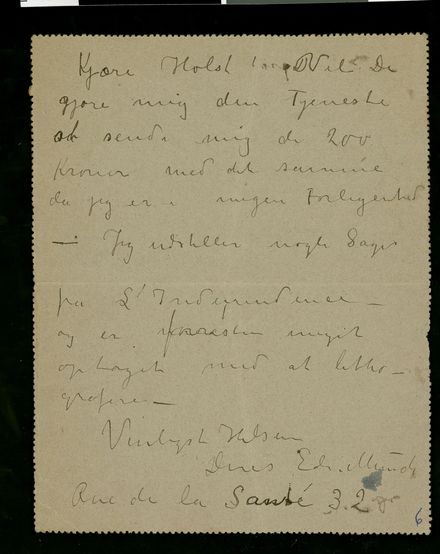 Kjære Holst! Vil De
gjøre mig den Tjeneste
at sende mig de 200
Kroner med det samme
da jeg er i megen Forlegenhed
— Jeg udstiller nogle Sager
på L'Independence —
og er forresten meget
optaget med at litho-
grafere —
Venligst Hilsen
Deres Edv. Munch
Rue de la Santé 32
6